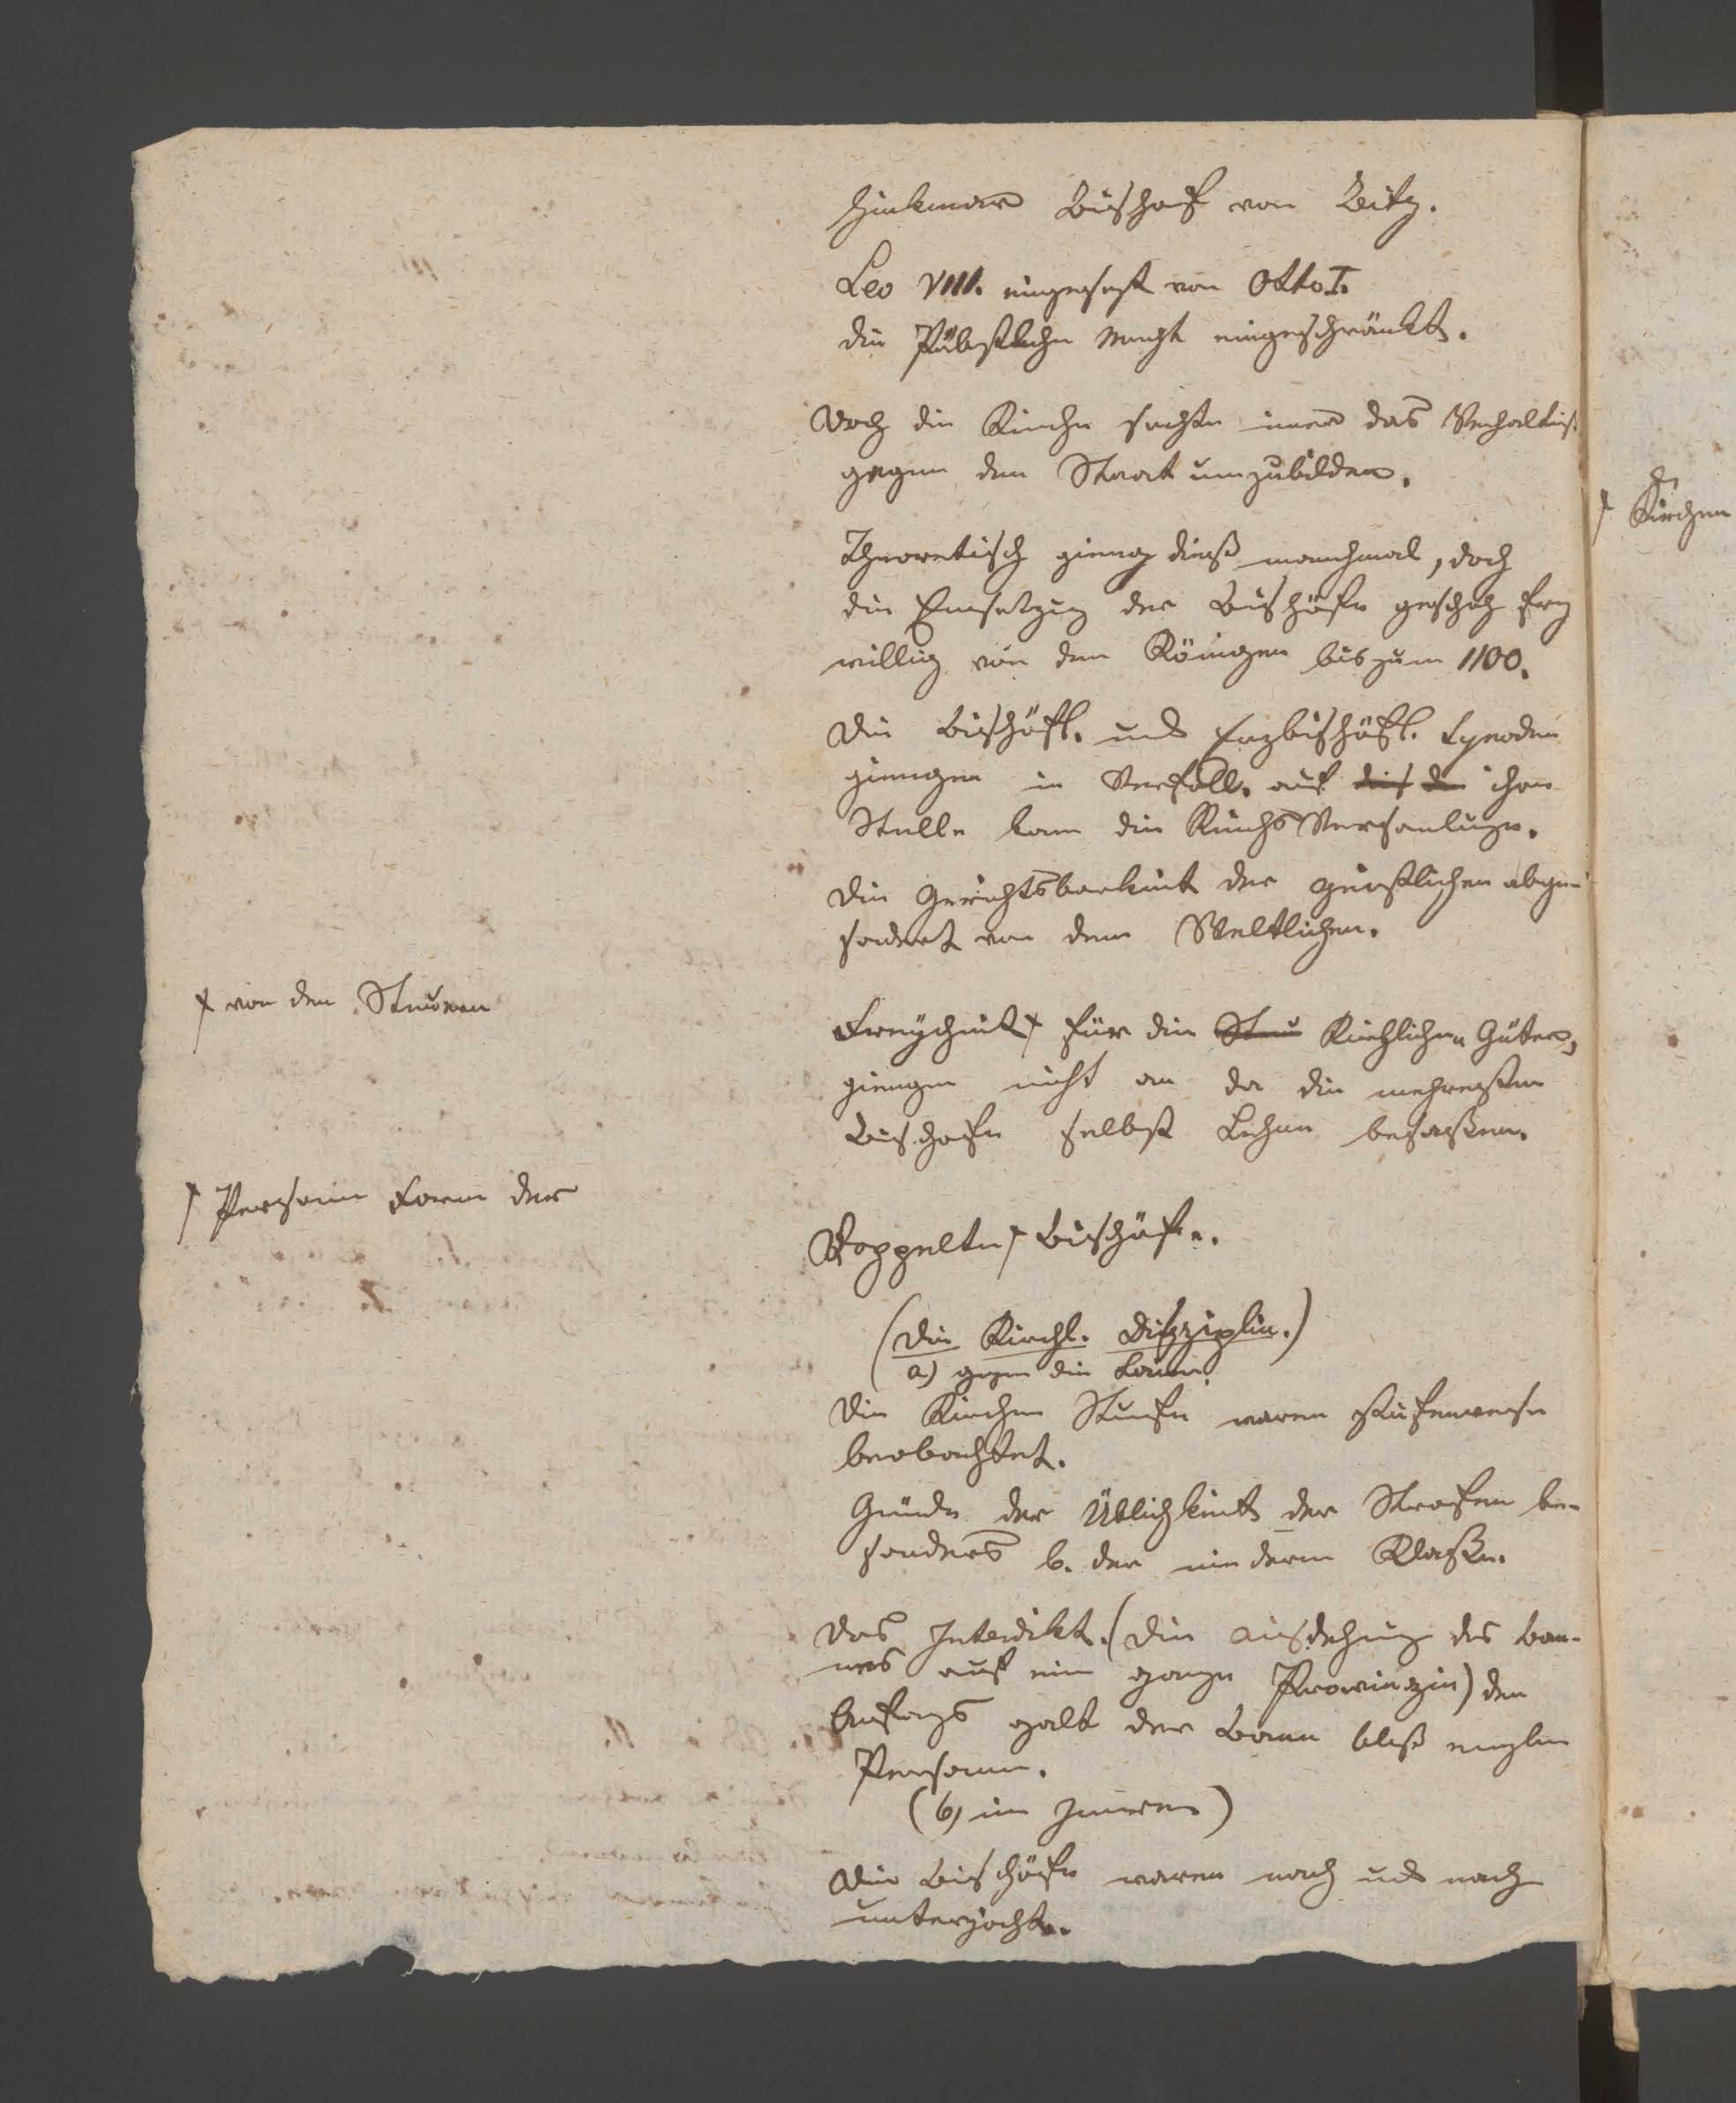 Hinkmar Bischof von
Leo VIII. eingesezt von Otto I.
die Päbstliche Macht eingeschränkt.
Doch die Kirche suchte imer das Verhältniß
gegen den Staat umzubilden.
Theoretisch gieng dieß manchmal, doch
die Einsetzug der Bischöfe geschah frey
willig von den Königen bis zum 1100.
Die bischöfl. und erzbischöfl. Synoden
giengen in Verfall. auf ihre
Stelle kam die ReichsVersamlugn.
Die Gerichtsbarkeit der geistlichen abge-
sondert von dem Weltlichen.
+ von den Steuern
Freyheit + für die Steu Kirchlichen Güter,
giengen nicht an da die mehresten
Bischofe selbst Lehen besaßen.
+ Person Form der
Doppelte + Bischöfe.
(Die Kirchl. Disziplin.)
a) gegen die Laien.
Die Kirchen Strafen waren stufenweise
beobachtet.
Gründe der Üblichkeit der Strafen be-
sonders b. der niederen Klaße.
Das Interdikt. (Die Ausdehnug des Ban-
nes auf eine ganze Provinzin) den
Anfangs galt der Bann bloß einzeln
Personen.
(b) im Inneren)
Die Bischöfe waren nach und nach
unterjocht.
+ Kirchen